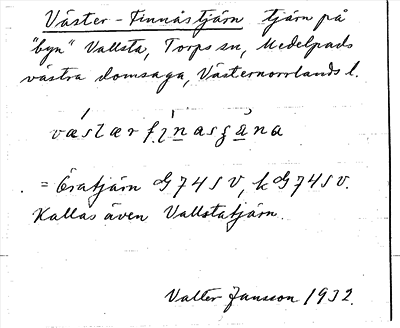 Väster-Finnåstjärn tjärn på
"byn" Vallsta, Torps sn, Medelpads
västra domsaga, Västernorrlands l.
væstær finasʒæna
= Öratjärn G74SV, kG74SV.
Kallas även Vallstatjärn.
Valter Jansson 1932.